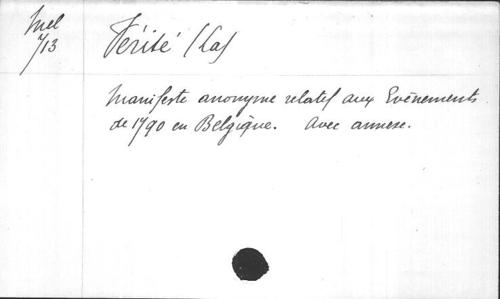 Mel
713
Vérité (La)
Manifeste anonyme relatif aux Evènements
de 1790 en Belgique. Avec annexe.